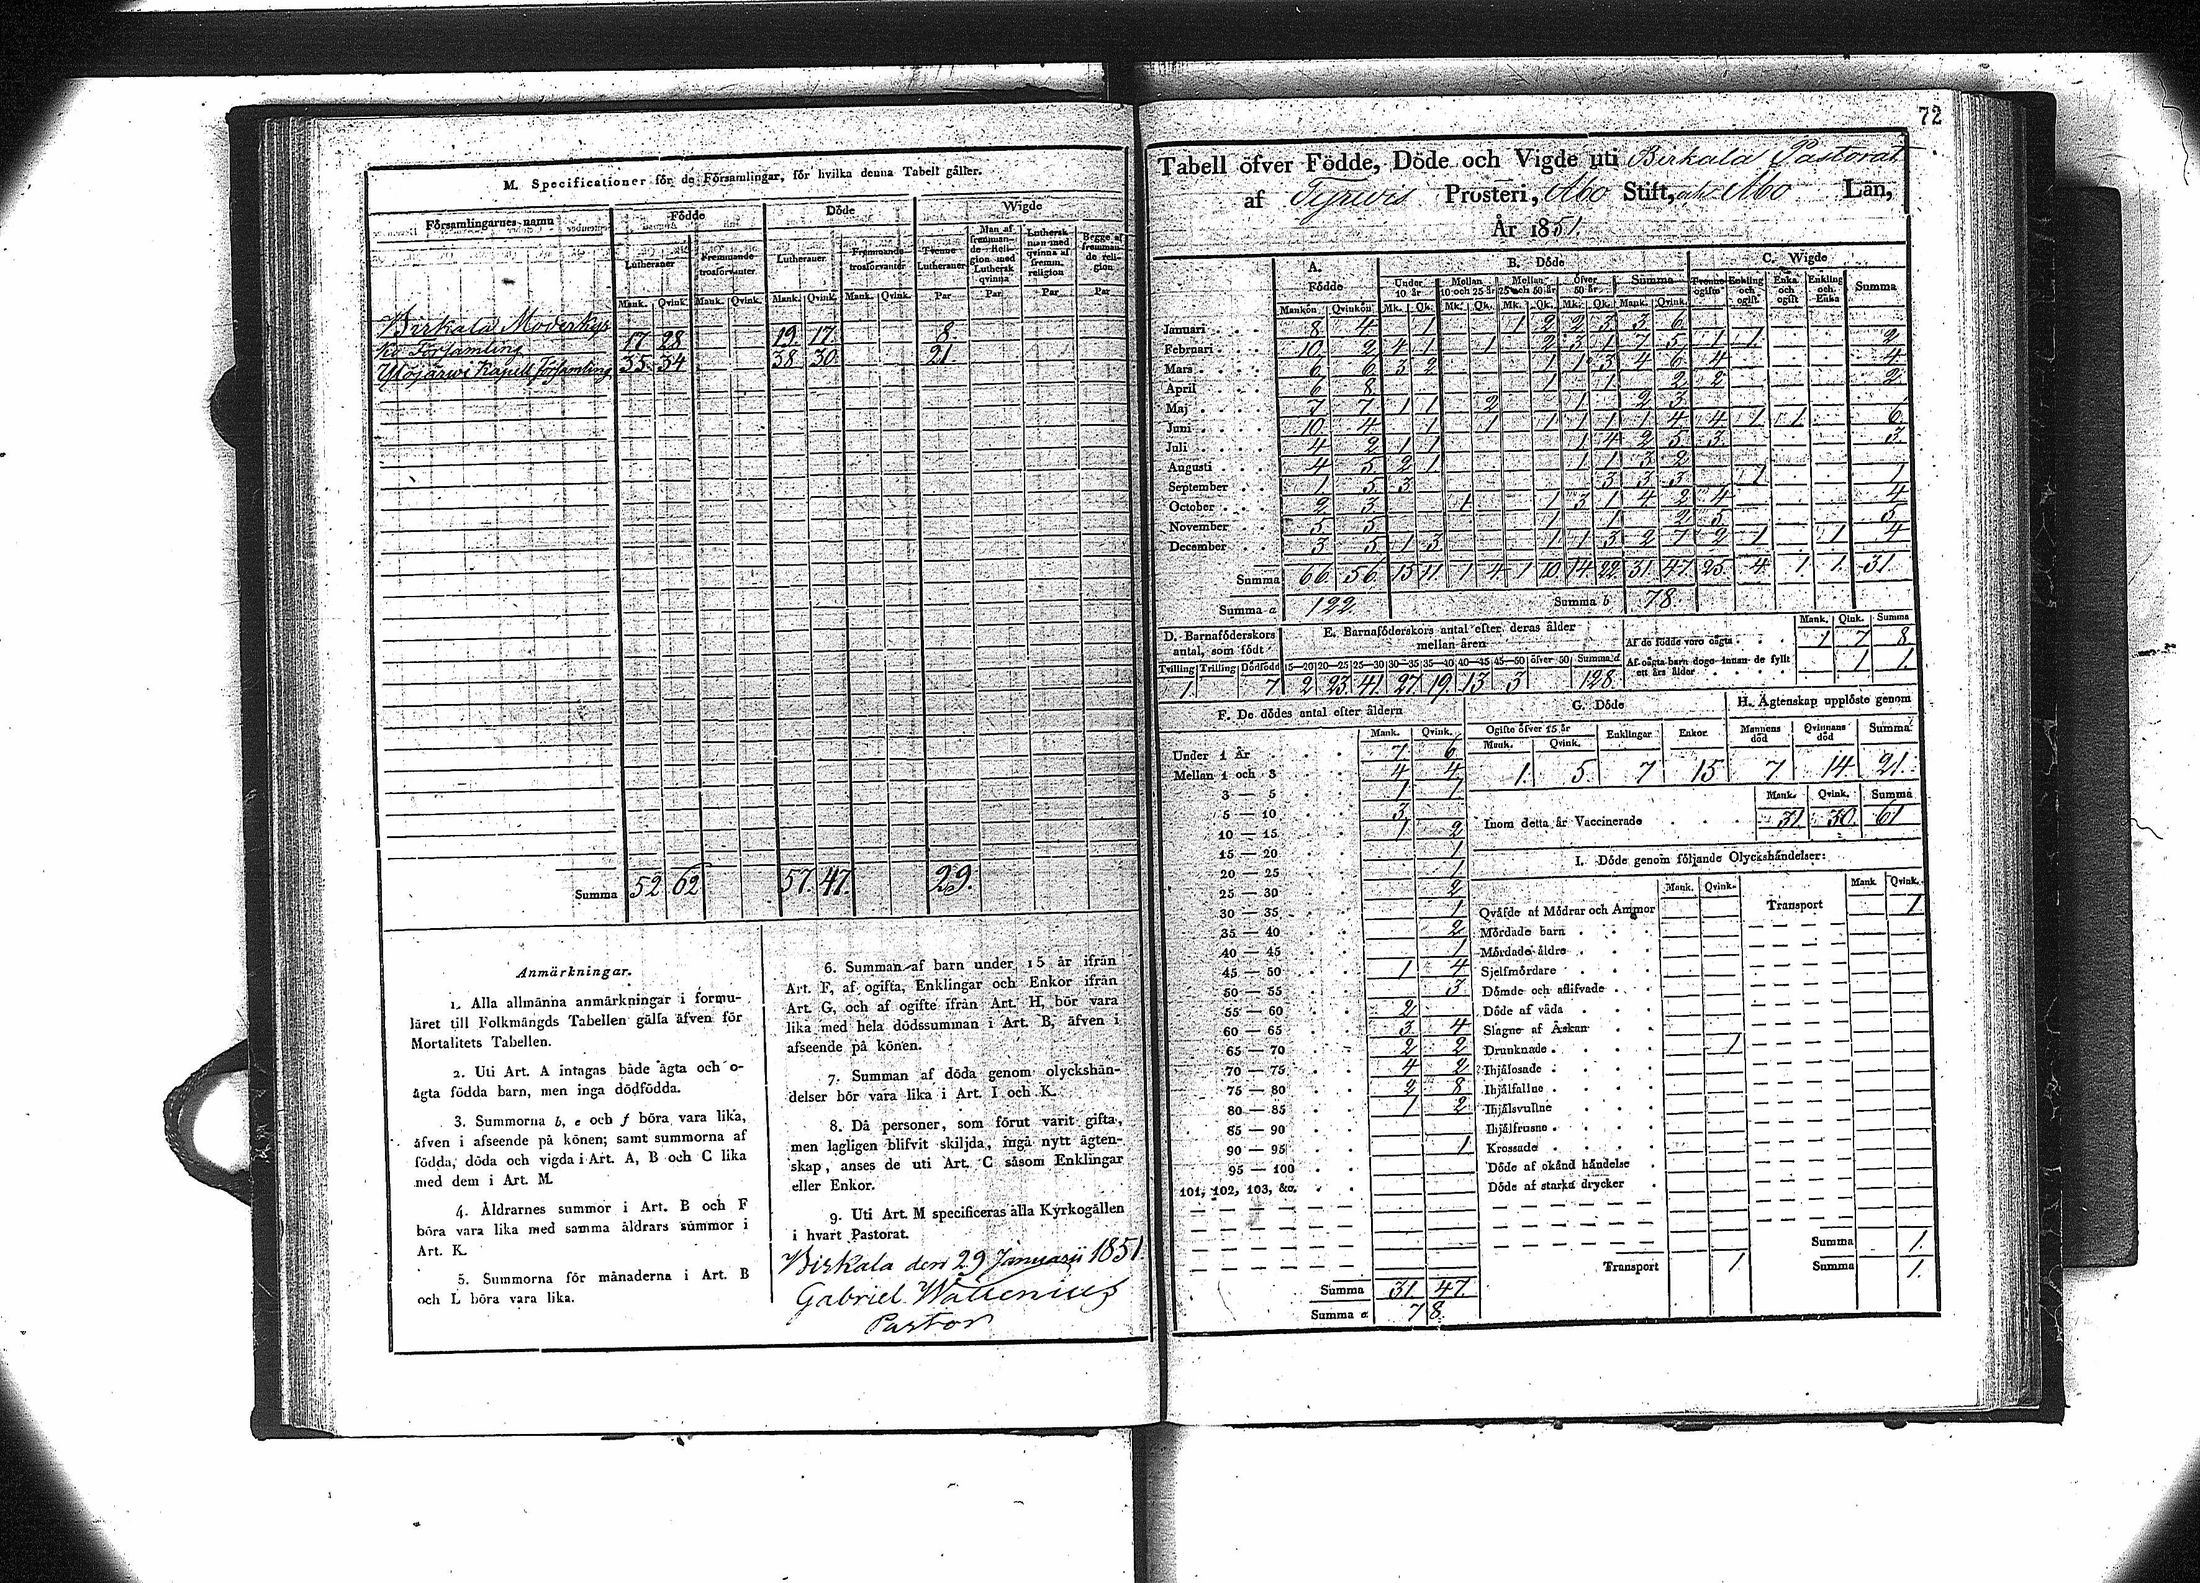 M. Specificationer för de Församlingar, för hvilka denna Tabell gäller.
Församlingarnes namn | Födde | Döde | Wigde
Lutheraner | Fremmande trosförvanter | Lutheraner | Fremmande trosförvanter | Tvenne Lutheraner | Man af fremmande Religion med Luthersk qvinna | Luthersk man med qvinna af fremm. religion | Begge af fremmande religion
Mank. | Qvink. | Mank. | Qvink. | Mank. | Qvink. | Mank. | Qvink. | Par | Par | Par | Par
Birkala Moderkyr
ko Församling 17 28 19 17 8.
Ylöjärwi Kapell församling 35 34 38 30 21.
Summa 52 62 57. 47. 29.
Anmärkningar.
1. Alla allmänna anmärkningar i formu-
läret till Folkmängds Tabellen gälla äfven för
Mortalitets Tabellen.
2. Uti Art. A intagas både ägta och o-
ägta födda barn, men inga dödfödda.
3. Summorna b, e och f böra vara lika,
äfven i afseende på könen; samt summorna af
födda, döda och vigda i Art. A, B och C lika
med dem i Art. M.
4. Åldrarnes summor i Art. B och F
böra vara lika med samma åldrars summor i
Art. K.
5. Summorna för månaderna i Art. B
och L böra vara lika.
6. Summan af barn under 15 år ifrån
Art. F, af ogifta, Enklingar och Enkor ifrån
Art. G, och af ogifte ifrån Art. H, bör vara
lika med hela dödssumman i Art. B, äfven i
afseende på könen.
7. Summan af döda genom olyckshän-
delser bör vara lika i Art. I och K.
8. Då personer, som förut varit gifta,
men lagligen blifvit skiljda, ingå nytt ägten-
skap, anses de uti Art. C såsom Enklingar
eller Enkor.
9. Uti Art. M specificeras alla Kyrkogällen
i hvart Pastorat.
Birkala den 29 Januarii 1851.
Gabriel Wallenius
Pastor
72
Tabell öfver Födde, Döde och Vigde uti Birkala Pastorat
af Tyrvis Prosteri, Åbo Stift, och Åbo Län,
År 1851.
A. Födde | B. Döde | C. Wigde
Under 10 år | Mellan 10 och 25 år | Mellan 25 och 50 år | Öfver 50 år | Summa | Tvenne ogifte | Enkling och ogift | Enka och ogift | Enkling och Enka | Summa
Mankön | Qvinkön | Mk. | Qk. | Mk. | Qk. | Mk. | Qk. | Mk. | Qk. | Mank. | Qvink.
Januari 8 4 1 1 2 2 3 3 6
Februari 10 2 4 1 1 2 3 1 7 5 1 1 2
Mars 6 6 3 2 1 1 3 4 6 4 4
April 6 8 1 1 2 2 2
Maj 7 7 1 1 2 1 2 3
Juni 10 4 1 1 1 1 1 1 4 4 1 1 6
Juli 4 2 1 1 1 4 2 5 3 3
Augusti 4 5 2 1 1 1 3 2
September 1 5 3 3 3 3 1 1
October 2 3 1 1 3 1 4 2 4 4
November 5 5 1 1 2 5 5
December 3 5 1 3 1 1 3 2 7 2 1 1 4
Summa 66 56 15 11 1 4 1 10 14 22 31 47 25 4 1 1 31
Summa a 122 Summa b 78
D. Barnaföderskors antal, som födt
Tvilling | Trilling | Dödfödd
1. 7
E. Barnaföderskors antal efter deras ålder mellan åren
15—20 | 20—25 | 25—30 | 30—35 | 35—40 | 40—45 | 45—50 | öfver 50 | Summa d
2 23 41 27 19 13 3 128
Mank. | Qink. | Summa
Af de födde voro oägta 1 7 8
Af oägta barn dogo innan de fyllt ett års ålder 1 1
F. De dödes antal efter åldern
Mank. | Qvink.
Under 1 År 7 6
Mellan 1 och 3 4 4
3 — 5 1 1
5 — 10 3
10 — 15 1 2
15 — 20 1
20 — 25 1
25 — 30 2
30 — 35 1
35 — 40 2
40 — 45 1
45 — 50 1 4
50 — 55 3
55 — 60 2
60 — 65 3 4
65 — 70 2 2
70 — 75 4 2
75 — 80 2 8
80 — 85 1 2
85 — 90
90 — 95 1
95 — 100
101, 102, 103, &c.
Summa 31 47
Summa e 78
G. Döde
Ogifte öfver 15 år | Enklingar | Enkor
Mank. | Qvink.
1 5 7 15
H. Ägtenskap upplöste genom
Mannens död | Qvinnans död | Summa
7 14 21
Mank. | Qvink. | Summa
Inom detta år Vaccinerade 31 30 61
I. Döde genom följande Olyckshändelser:
Mank. | Qvink. | Mank | Qvink.
Qväfde af Mödrar och Ammor
Mördade barn
Mördade äldre
Sjelfmördare
Dömde och aflifvade
Döde af våda
Slagne af Åskan
Drunknade 1
Ihjälosade
Ihjälfallne
Ihjälsvultne
Ihjälfrusne
Krossade
Döde af okänd händelse
Döde af starka drycker
Transport 1
Transport 1
Summa 1.
Summa 1.